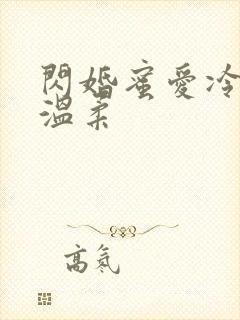 閃婚蜜愛冷
溫柔
高氣